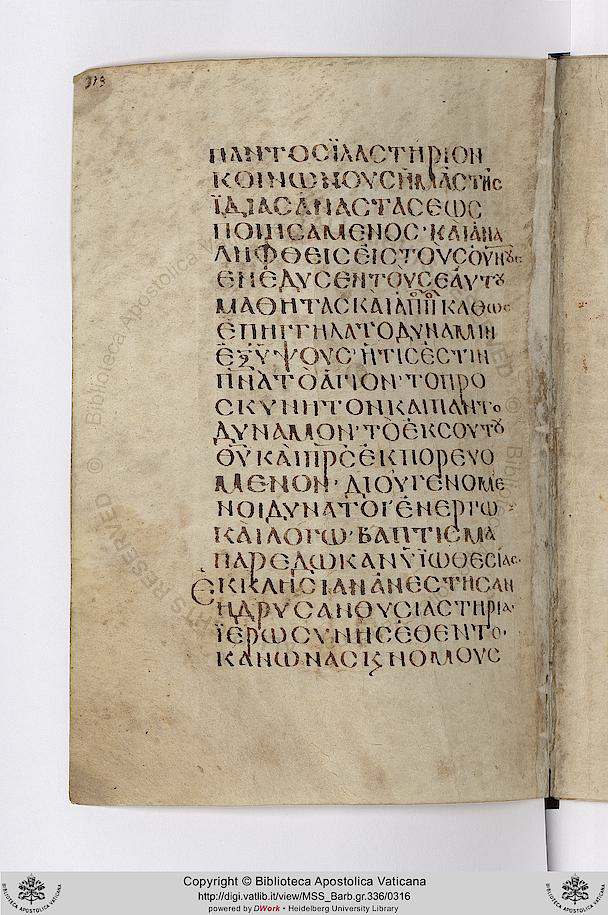 313
ΠΑΝΤΟΣΪΛΑΣΤΗΡΙΟΝ
ΚΟΙΝΩΝΟΥΣΗΜΑΣΤΗς
ΪΔΙΑΣΑΝΑΣΤΑΣΕΩΣ
ΠΟΙΗΣΑΜΕΝΟΣ·ΚΑΙΑΝΑ
ΛΗΦΘΕΙΣΕΙΣΤΟΥΣΟΥΝΟΥΣ
ΕΝΕΔΥΣΕΝΤΟΥΣΕΑΥΤȢ
ΜΑΘΗΤΑΣΚΑΙΑΠΟ ΚΑΘΩς
ΕΠΗΓΓΗΛΑΤΟΔΥΝΑΜΙΝ
ΕΞΥΨΟΥΣ·ΗΤΙΣΕΣΤΙΝ
ΠΝΑΤΟΑΓΙΟΝ·ΤΟΠΡΟ
ΣΚΥΝΗΤΟΝΚΑΙΠΑΝΤο
ΔΥΝΑΜΟΝ·ΤΟΕΚΣΟΥΤȢ
ΘΥΚΑΙΠΡΣΕΚΠΟΡΕΥΟ
ΜΕΝΟΝ·ΔΙΟΥΓΕΝΟΜΕ
ΝΟΙΔΥΝΑΤΟΙ·ΕΝΕΡΓΩ
ΚΑΙΛΟΓΩ·ΒΑΠΤΙΣΜΑ
ΠΑΡΕΔΩΚΑΝΥΪΟΘΕΣΙΑς·
ΕΚΚΛΗΣΙΑΝΑΝΕΣΤΗΣΑΝ
ΗΔΡΥΣΑΝΘΥΣΙΑΣΤΗΡΙΑ·
ΪΕΡΩΣΥΝΗΣΕΘΕΝΤΟ·
ΚΑΝΩΝΑΣϗΝΟΜΟΥΣ
Copyright © Biblioteca Apostolica Vaticana
http://digi.vatlib.it/view/MSS_Barb.gr.336/0316
powered by DWork • Heidelberg University Library
BIBLIOTECA APOSTOLICA VATICANA
BIBLIOTECA APOSTOLICA VATICANA